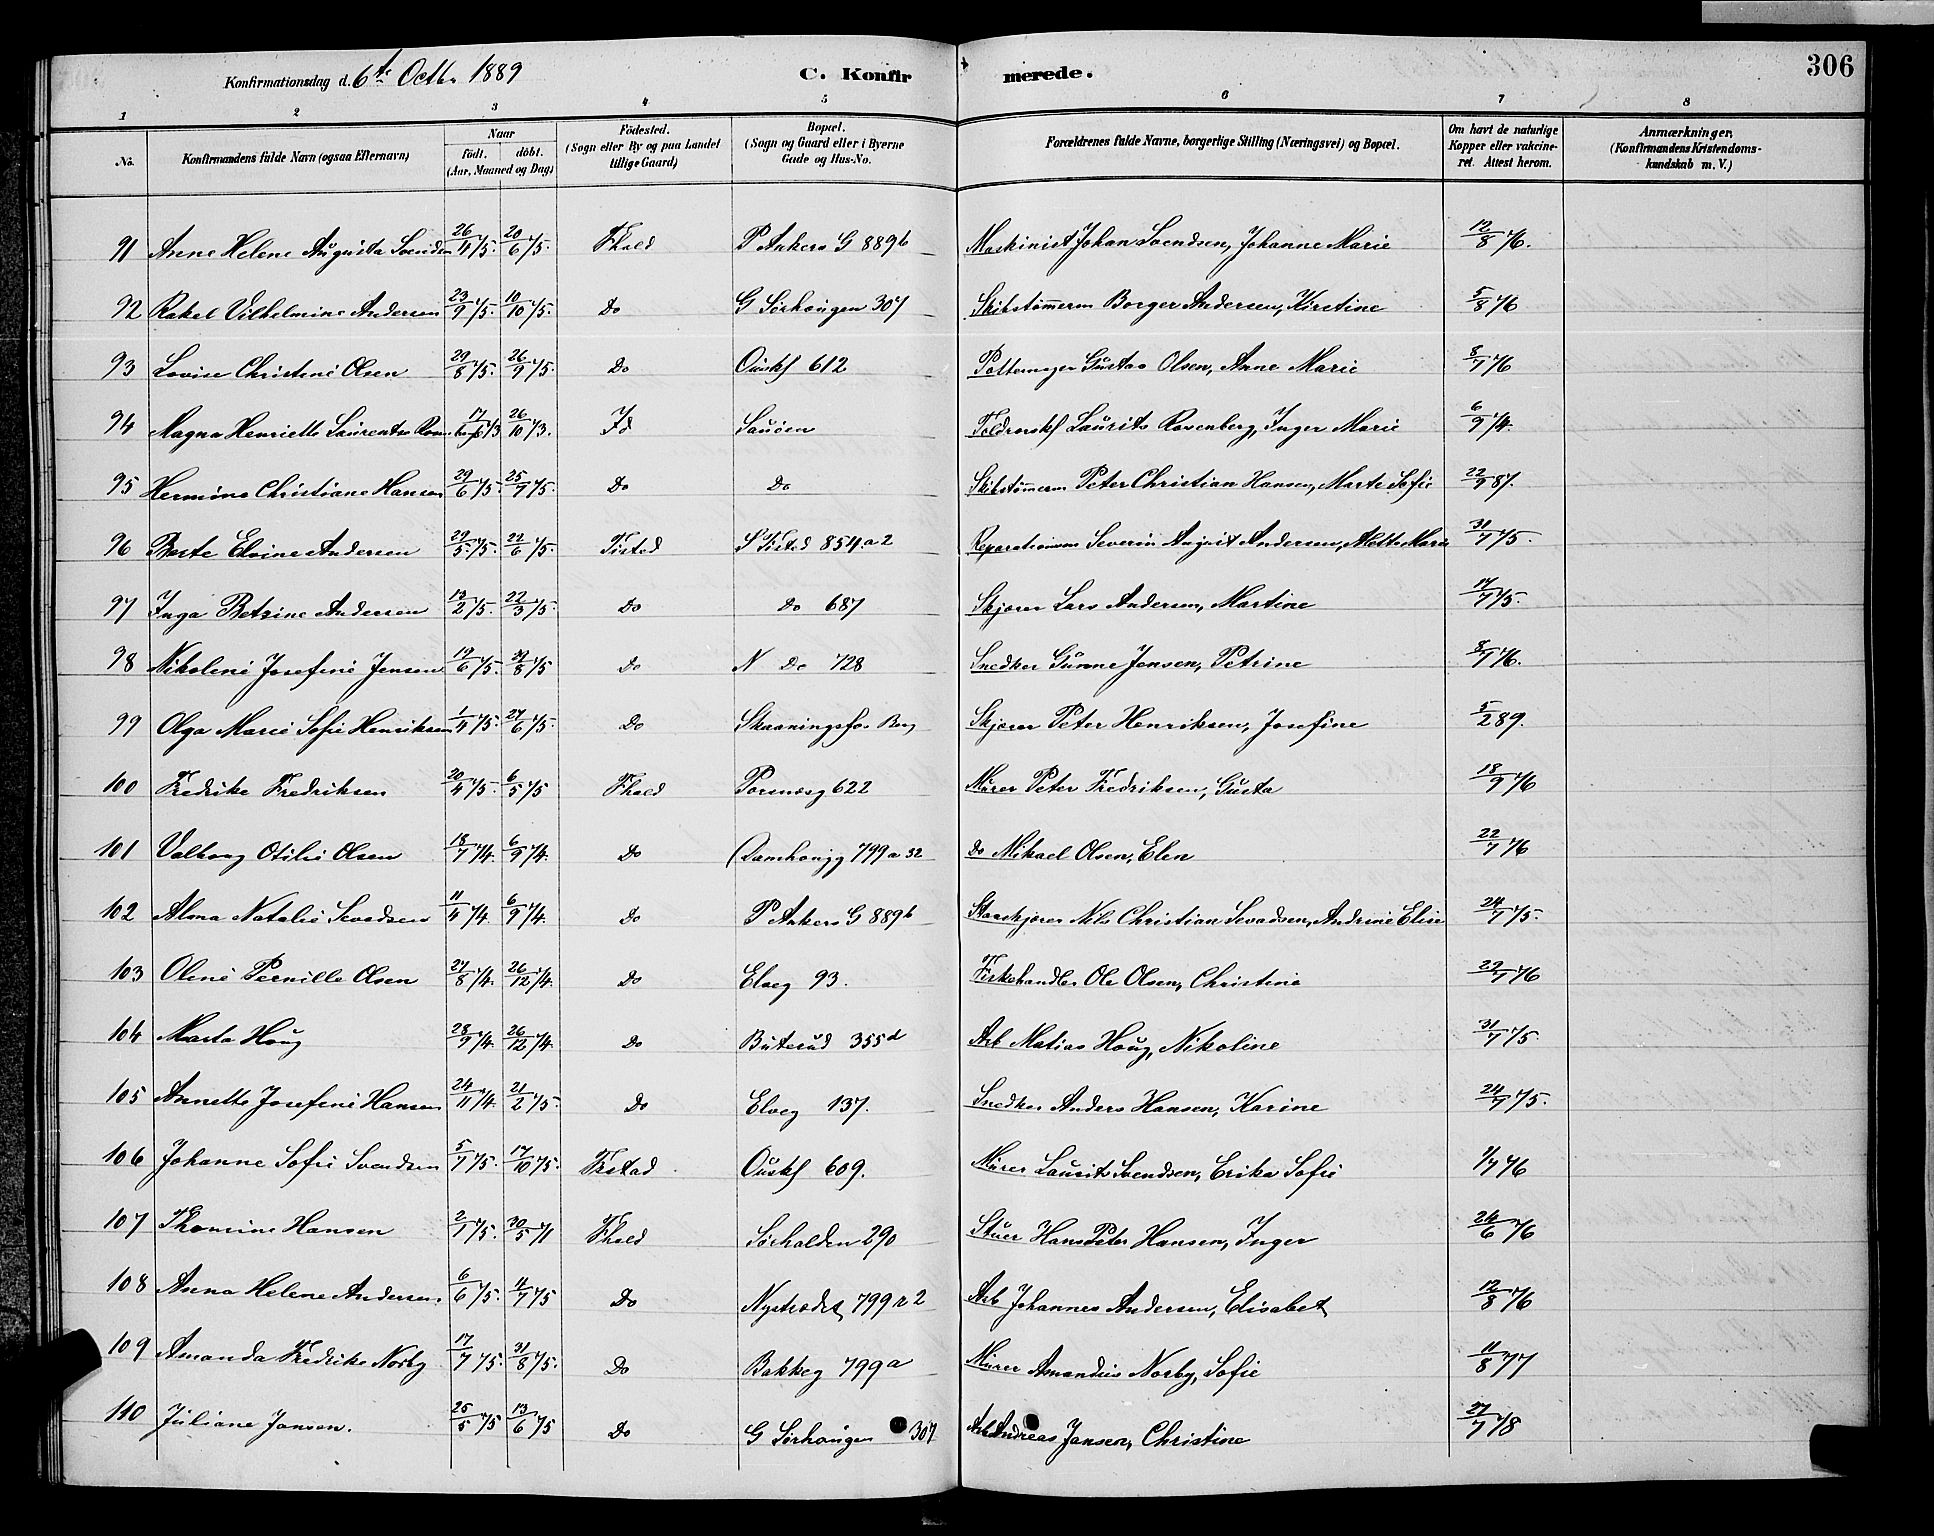 306
Konfirmationsdag d. 6te Octbr 1889 C. Konfirmerede.
1 2 3 4 5 6 7 8
No. Konfirmandens fulde Navn (ogsaa Efternavn) Naar født. døbt. (Aar, Maaned og Dag) Födested. (Sogn eller By og paa Landet tillige Gaard) Bopæl. (Sogn og Gaard eller i Byerne Gade og Hus-No. Forældrenes fulde Navne, borgerlige Stilling (Næringsvei) og Bopæl. Om havt de naturlige Kopper eller vakcineret. Attest herom. Anmærkninger. (Konfirmandens Kristendomskundskab m. V.)
91 Anne Helene Augusta Svendsen 26/4 75. 20/6 75. Fhald P Ankers G 889b Maskinist Johan Svendsen, Johanne Marie 12/8 76.
92 Rakel Vilhelmine Andersen 23/9 75. 10/10 75. Do G Sørhougen 307 Skibstømerm Borger Andersen, Kirstine 5/8 76
93 Lovise Christine Olsen 29/8 75. 26/9 75. Do Ouskf 612 Pottemager Gustav Olsen, Anne Marie 8/7 76
94 Magna Henriette Laurentse 17/6 73 26/10 73. Id Sauøen Laurits Rosenberg, Inger Marie 6/9 74.
95 Hermine Christiane Hansen 29/6 75. 25/7 75. Do Do Skibstømerm Peter Christian Hansen, Marte Sofie 22/9 87.
96 Berte Elvine Andersen 29/5 75. 27/6 75. Tisted S Tisted 854.a2 Reparationsm Severin August Andersen, Mette Marie 31/7 75.
97 Inga Betzine Andersen 12/2 75. 22/3 75. Do Do 687 Skjærer Lars Andersen, Martine 17/7 75.
98 Nikoline Josefine Jensen 19/6 75. 29/8 75 Do N Do 728 Snedker Gunne Jensen, Petrine 8/7 76.
99 Olga Marie Sofie Henriksen 1/4 75. 27/6 75. Do Skaaningsfos Berg Skjærer Peter Henriksen, Josefine 5/2 89.
100 Fredrike Fredriksen 20/4 75. 6/5 75 Fhald Porsnæsg 622 Murer Peter Fredriksen, Gusta 18/9 76
101 Valborg Otilie Olsen 18/7 74. 6/9 74. Do Damhougg 799a 32 Do Mikael Olsen, Elen 22/7 76
102 Alma Natalie Sevadsen 11/4 74. 6/9 74. Do P Ankers G 889b Nils Christian Sevadsen, Andrine Elise 24/7 75.
103 Oline Pernille Olsen 27/8 74. 26/12 74. Do Elveg 93. Fiskehandler Ole Olsen, Christine 29/7 76
104 Marta Houg 28/9 74. 26/12 74. Do Buterud 355d Arb Matias Houg, Nikoline 31/7 75.
105 Annette Josefine Hansen 24/11 74. 21/2 75. Do Elveg 137. Snedker Anders Hansen, Karine 24/7 75.
106 Johanne Sofie Svendsen 5/7 75. 17/10 75. Fistad Ouskf 609. Murer Laurits Svendsen, Erika Sofie 7/7 76
107 Thomine Hansen 2/1 75. 30/5 71 Fhald Sørhalden 290 Stuer Hans Peter Hansen, Inger 24/6 76
108 Anna Helene Andersen. 6/6 75. 11/7 75 Do Nystrædet 799 r2 Arb Johannes Andersen, Elisabet 12/8 76
109 Amanda Fredrike Norby 17/7 75. 31/8 75. Do Bakkeg 799a Murer Amandus Norby, Sofie 11/8 77
110 Juliane Jansen. 25/5 75 13/6 75 Do G Sørhougen 307 Arb Andreas Jansen, Christine 27/7 78